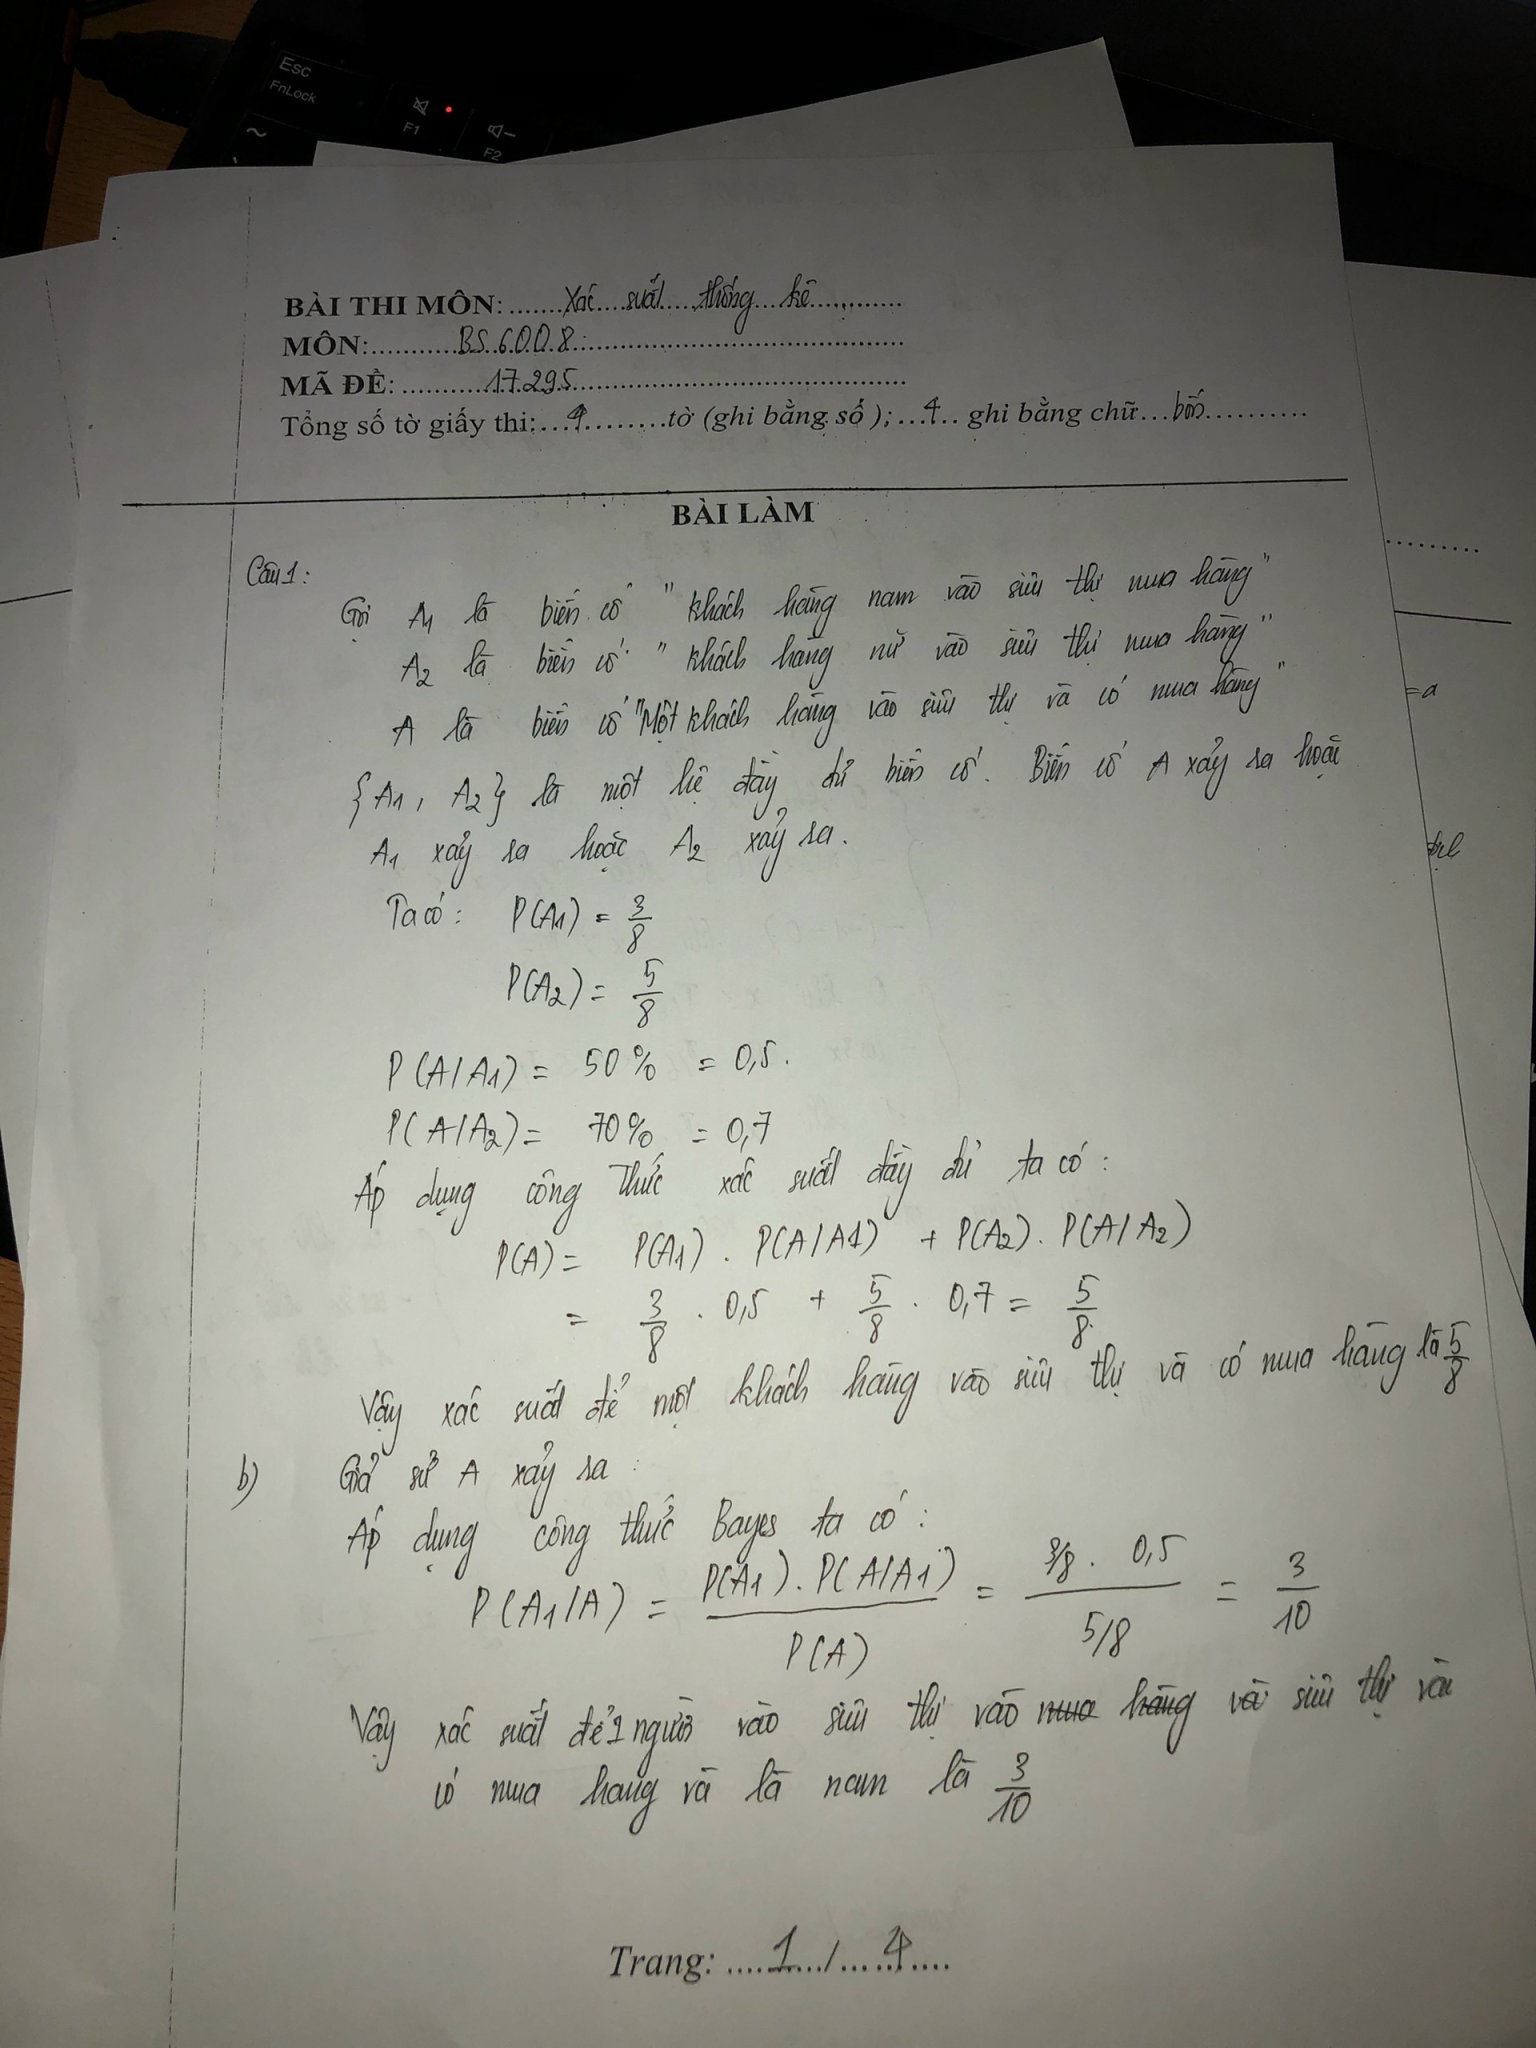 Esc
FnLock
F1
F2
~
BÀI THI MÔN: Xác suất thống kê
MÔN: BS6008
MÃ ĐỀ: 17295
Tổng số tờ giấy thi: 4 tờ (ghi bằng số); 4 ghi bằng chữ bốn
BÀI LÀM
Câu 1:
Gọi A1 là biến cố "khách hàng nam vào siêu thị mua hàng"
A2 là biến cố "khách hàng nữ vào siêu thị mua hàng"
A là biến cố "Một khách hàng vào siêu thị và có mua hàng"
{A1, A2} là một hệ đầy đủ biến cố. Biến cố A xảy ra hoặc
A1 xảy ra hoặc A2 xảy ra.
Ta có: P(A1) = 3/8
P(A2) = 5/8
P(A/A1) = 50% = 0,5.
P(A/A2) = 70% = 0,7
Áp dụng công thức xác suất đầy đủ ta có:
P(A) = P(A1) . P(A/A1) + P(A2) . P(A/A2)
= 3/8 . 0,5 + 5/8 . 0,7 = 5/8
Vậy xác suất để một khách hàng vào siêu thị và có mua hàng là 5/8
b) Giả sử A xảy ra:
Áp dụng công thức Bayes ta có:
P(A1/A) = P(A1) . P(A/A1) / P(A) = 3/8 . 0,5 / 5/8 = 3/10
Vậy xác suất để 1 người vào siêu thị vào mua hàng và siêu thị và
có mua hang và là nam là 3/10
Trang: 1 / 4
= a